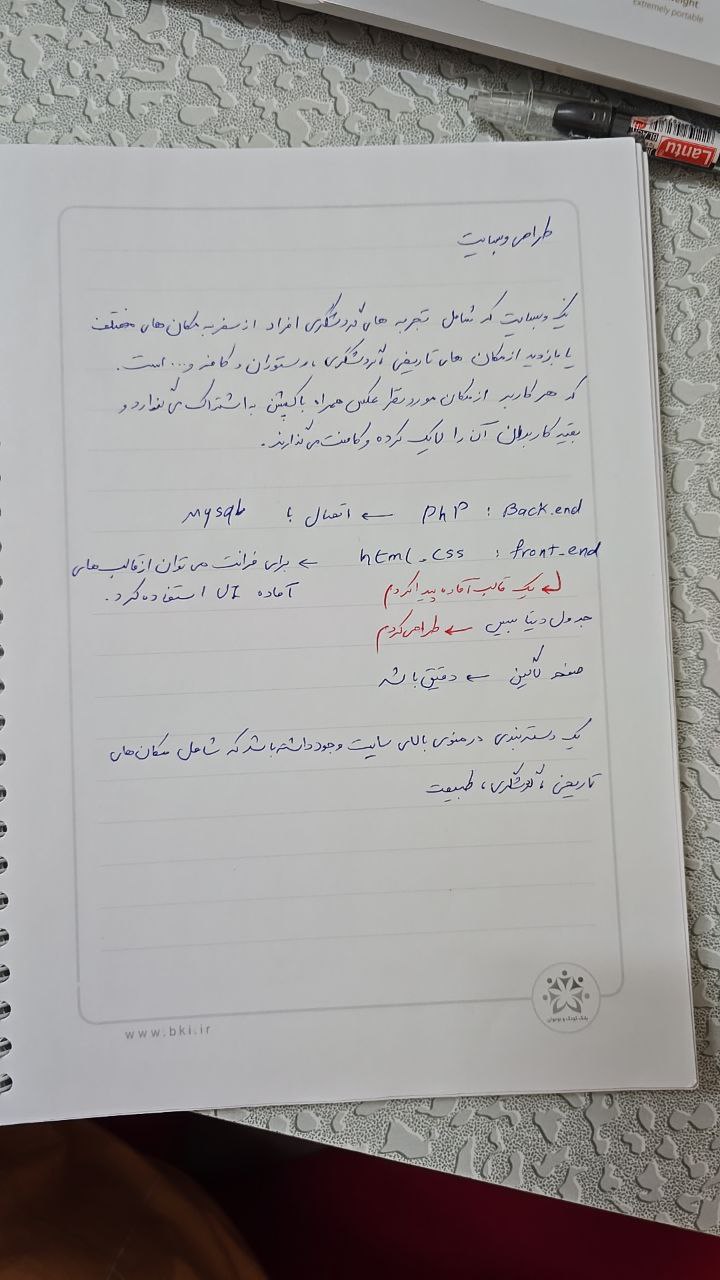 extremely portable
Lantu
طراحی وبسایت
یک وبسایت که شامل تجربه های گردشگری افراد از سفر به مکان های مختلف
یا بازدید از مکان های تاریخی، گردشگری، رستوران و کافه و... است.
که هر کاربر از مکان مورد نظر عکس همراه با کپشن به اشتراک می گذارد و
بقیه کاربران آن را لایک کرده و کامنت می گذارند.
Back.end : PhP ← اتصال با mysql
front-end : html.css ← برای فرانت می توان از قالب های
آماده UI استفاده کرد.
یک قالب آماده پیدا کردم
جدول دیتا بیس ← طراحی کردم
صفحه لاگین ← دقیق باشه
یک دسته بندی در منوی بالای سایت وجود داشته باشد که شامل مکان های
تاریخی، گردشگری، طبیعت
بانک کودک و نوجوان
www.bki.ir